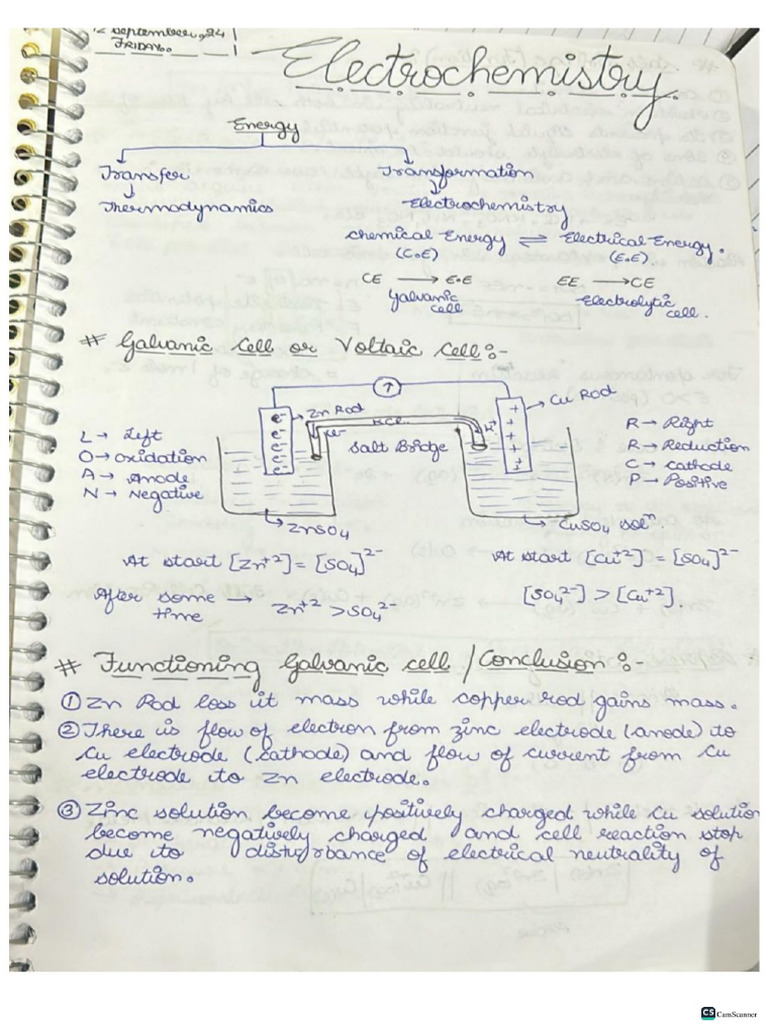 September, 24
FRIDAY.
Electrochemistry.
Energy
Transfer
Transformation
Thermodynamics
Electrochemistry
Chemical Energy ⇌ Electrical Energy.
(C.E) (E.E)
CE → E.E EE → CE
Galvanic cell
Electrolytic cell.
# Galvanic Cell or Voltaic Cell :-
Zn Rod
Cu Rod
KCl
Salt Bridge
e⁻
e⁻
e⁻
e⁻
+
+
+
+
+
L → Left
O → oxidation
A → Anode
N → Negative
R → Right
R → Reduction
C → cathode
P → Positive
ZnSO₄
CuSO₄ solⁿ.
At start [Zn⁺²] = [SO₄]²⁻
At start [Cu⁺²] = [SO₄]²⁻
After some time → Zn⁺² > SO₄²⁻
[SO₄²⁻] > [Cu⁺²].
# Functioning Galvanic cell / Conclusion :-
① Zn Rod loss it mass while copper rod gains mass.
② There is flow of electron from zinc electrode (anode) to
Cu electrode (cathode) and flow of current from Cu
electrode to Zn electrode.
③ Zinc solution become positively charged while Cu solution
become negatively charged and cell reaction stop
due to disturbance of electrical neutrality of
solution.
CS CamScanner